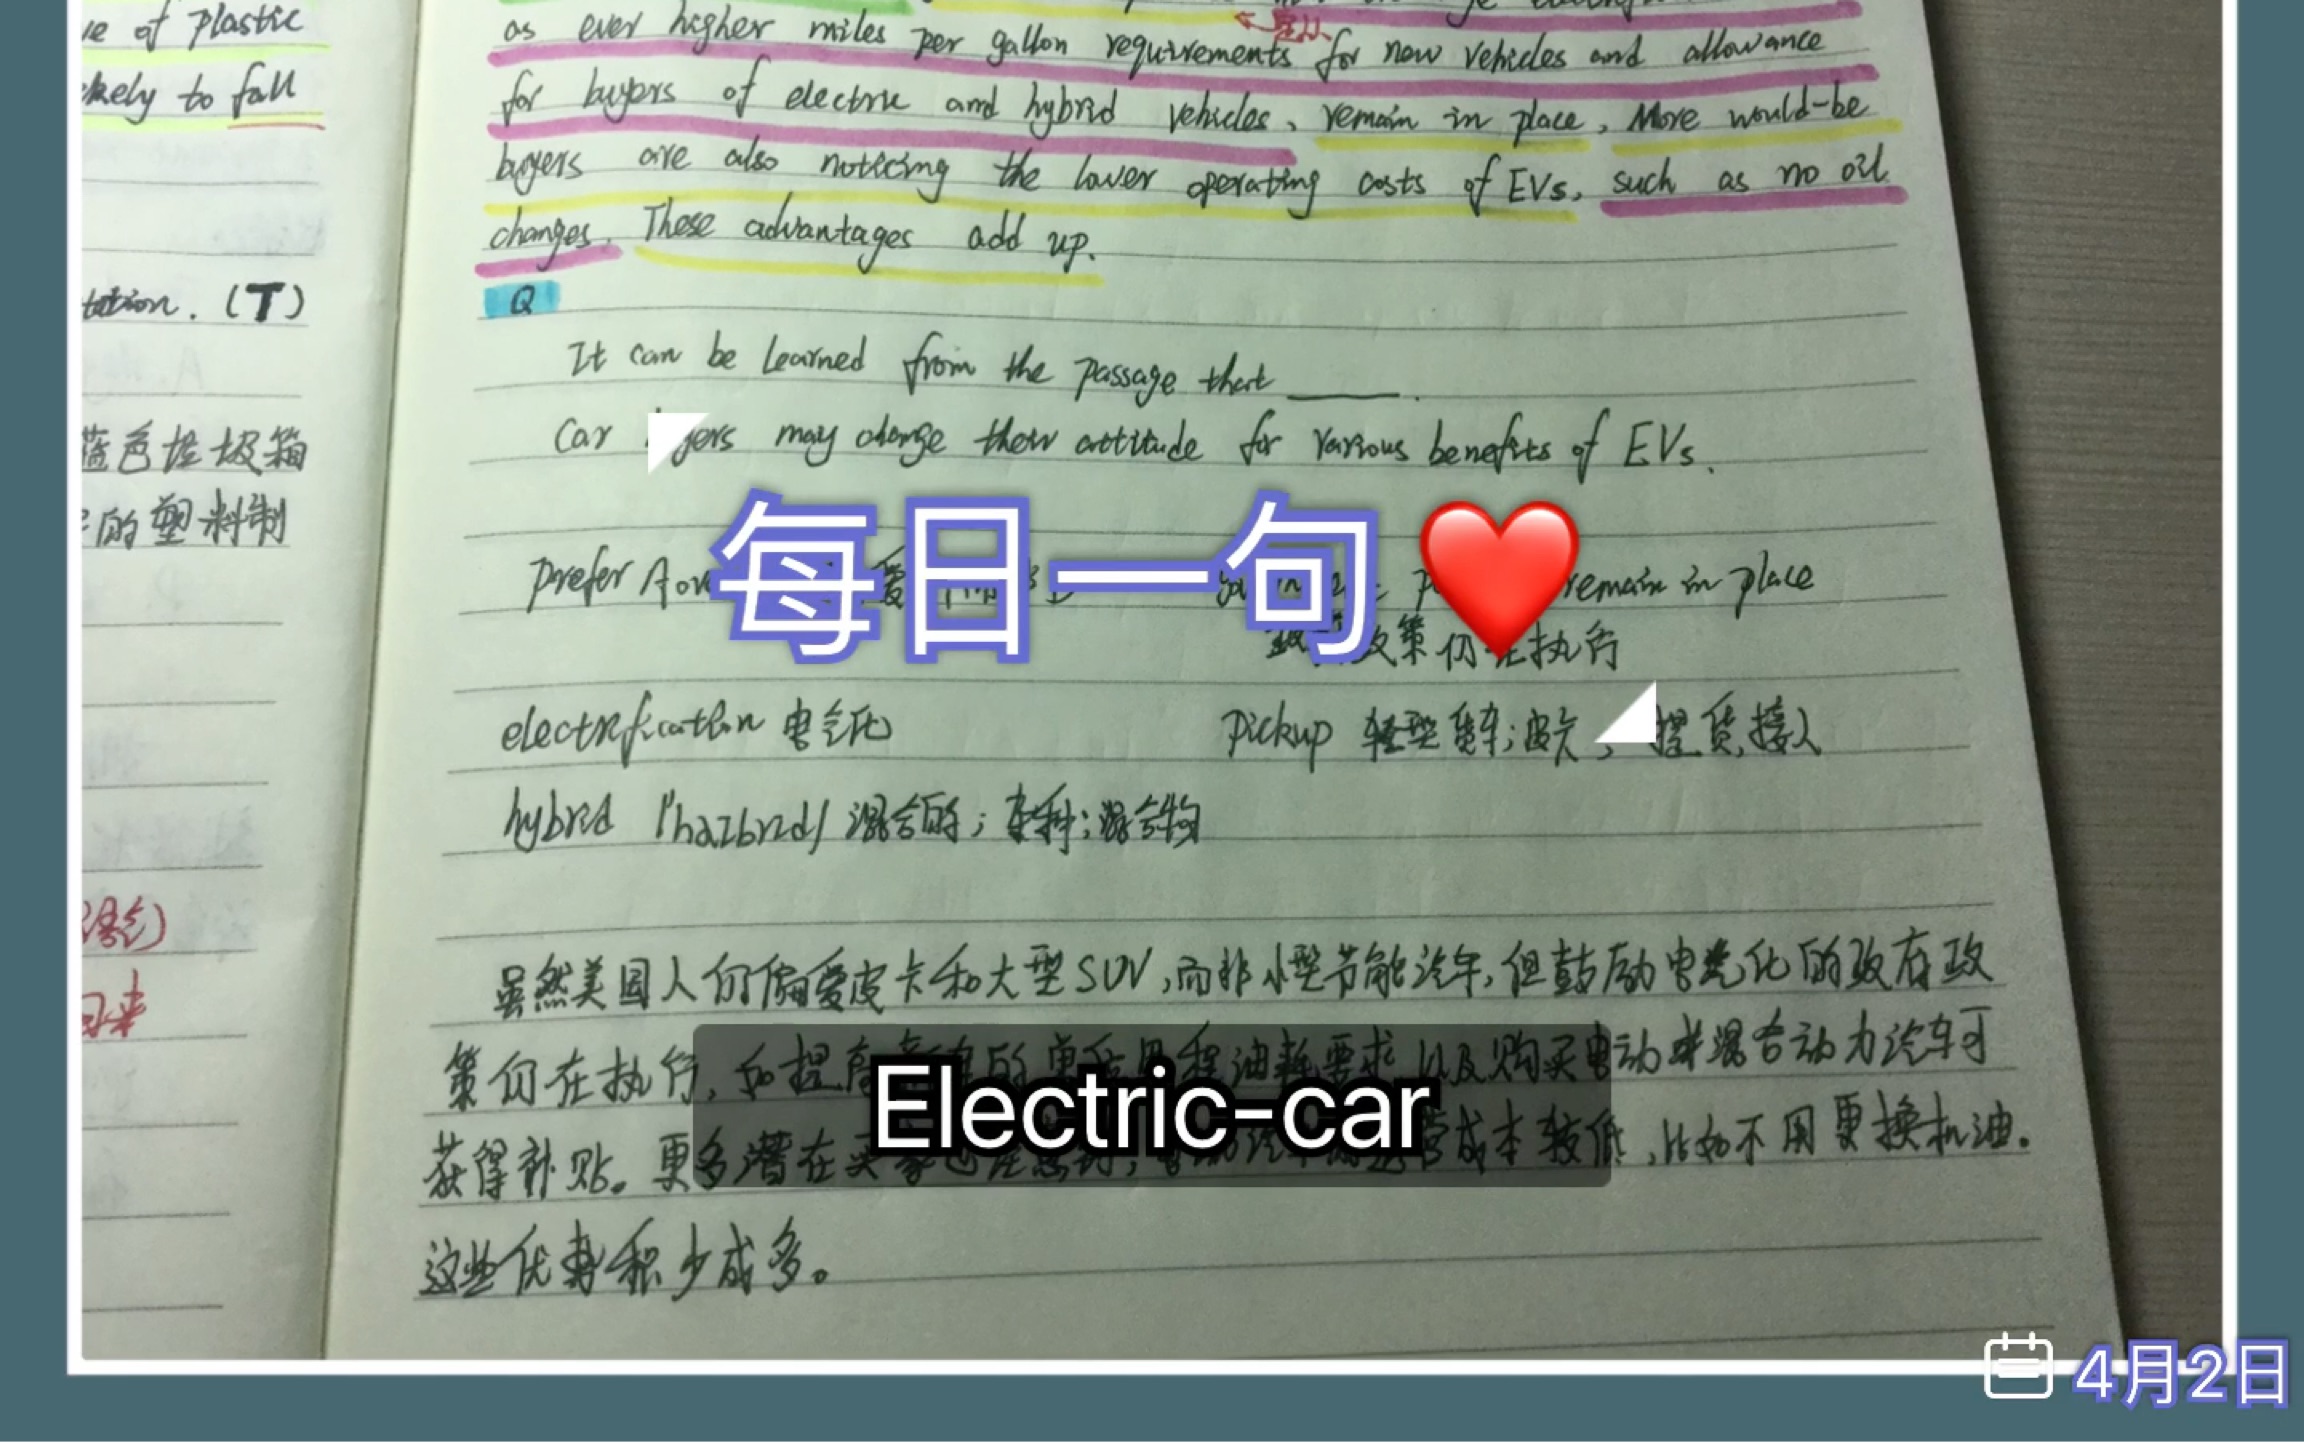 of plastic
to fall
(T)
蓝色垃圾箱
的塑料制
回来
as ever higher miles per gallon requirements for new vehicles and allowance
for buyers of electric and hybrid vehicles, remain in place, More would-be
buyers are also noticing the lower operating costs of EVs, such as no oil
changes. These advantages add up.
Q
It can be learned from the passage that ____.
Car may change their attitude for various benefits of EVs.
每日一句 ❤️
prefer A remain in place
策仍在执行
electrification 电气化
pickup 轻型货车;皮卡; 提货,接人
hybrid /'haɪbrɪd/ 混合的;杂种;混合物
虽然美国人仍偏爱皮卡和大型SUV,而非小型节能汽车,但鼓励电气化的政府政
策仍在执行, 如提高 的 里程油耗要求 以及购买电动或混合动力汽车可
Electric-car
获得补贴。更多潜在买家也注意到, 成本较低,比如不用更换机油。
这些优势积少成多。
4月2日